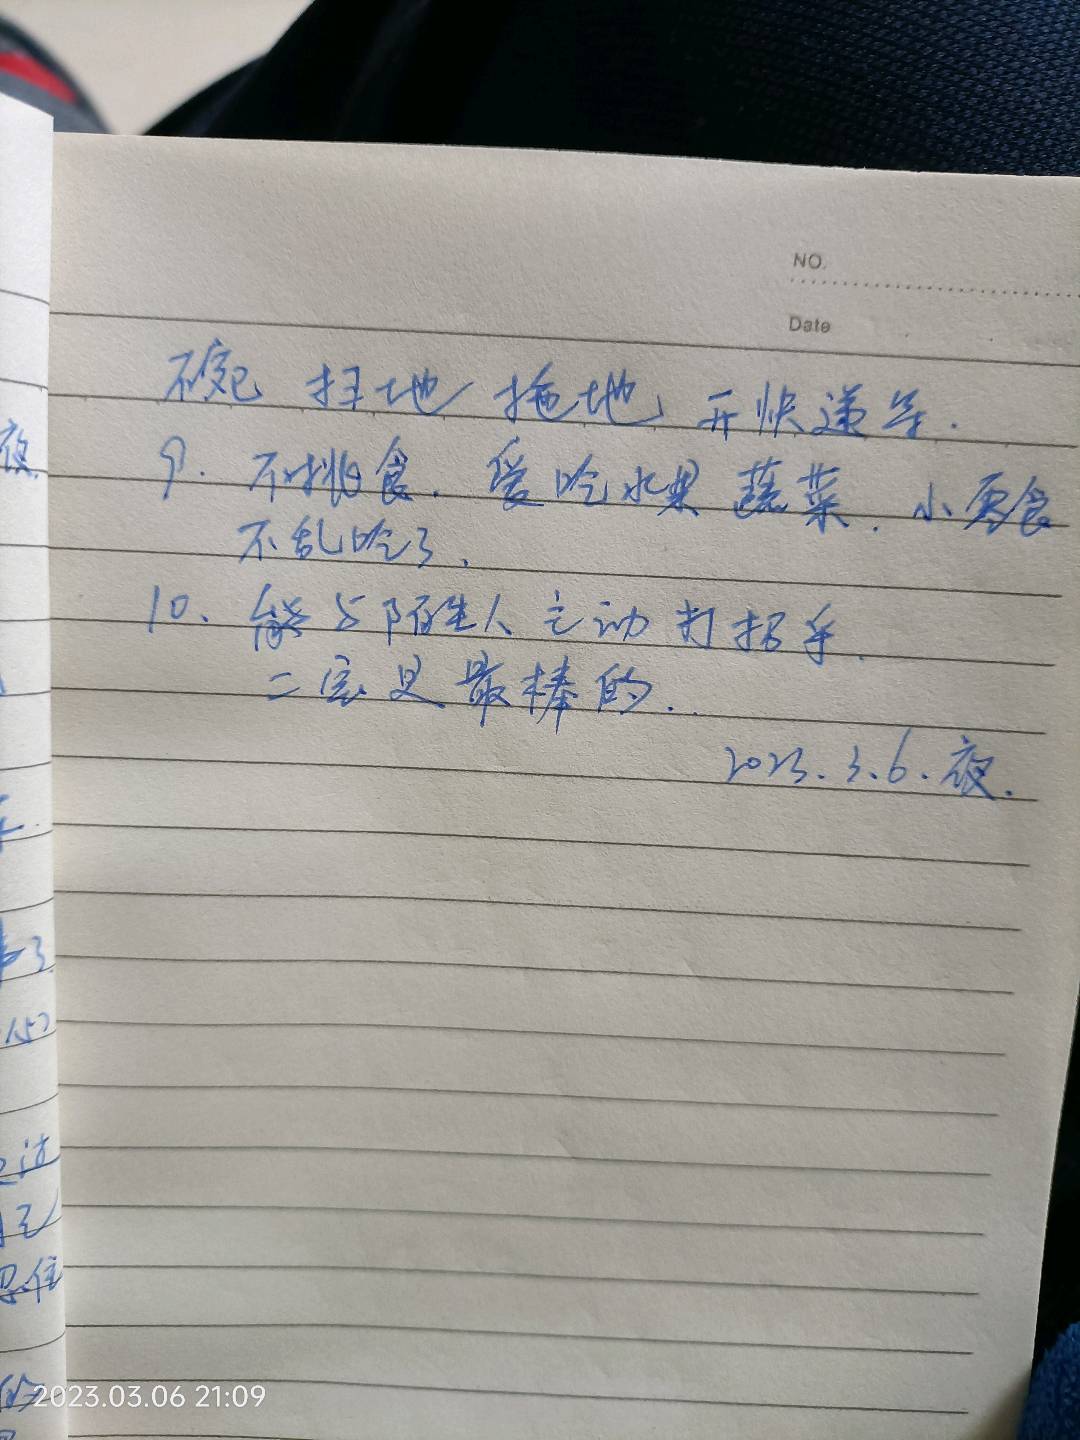 NO.
Date
碗 扫地 拖地 开快递等.
9. 不挑食. 爱吃水果 蔬菜. 小零食
不乱吃了.
10. 能与陌生人主动打招呼.
二宝是最棒的.
2023.3.6.夜.
夜.
2023.03.06 21:09